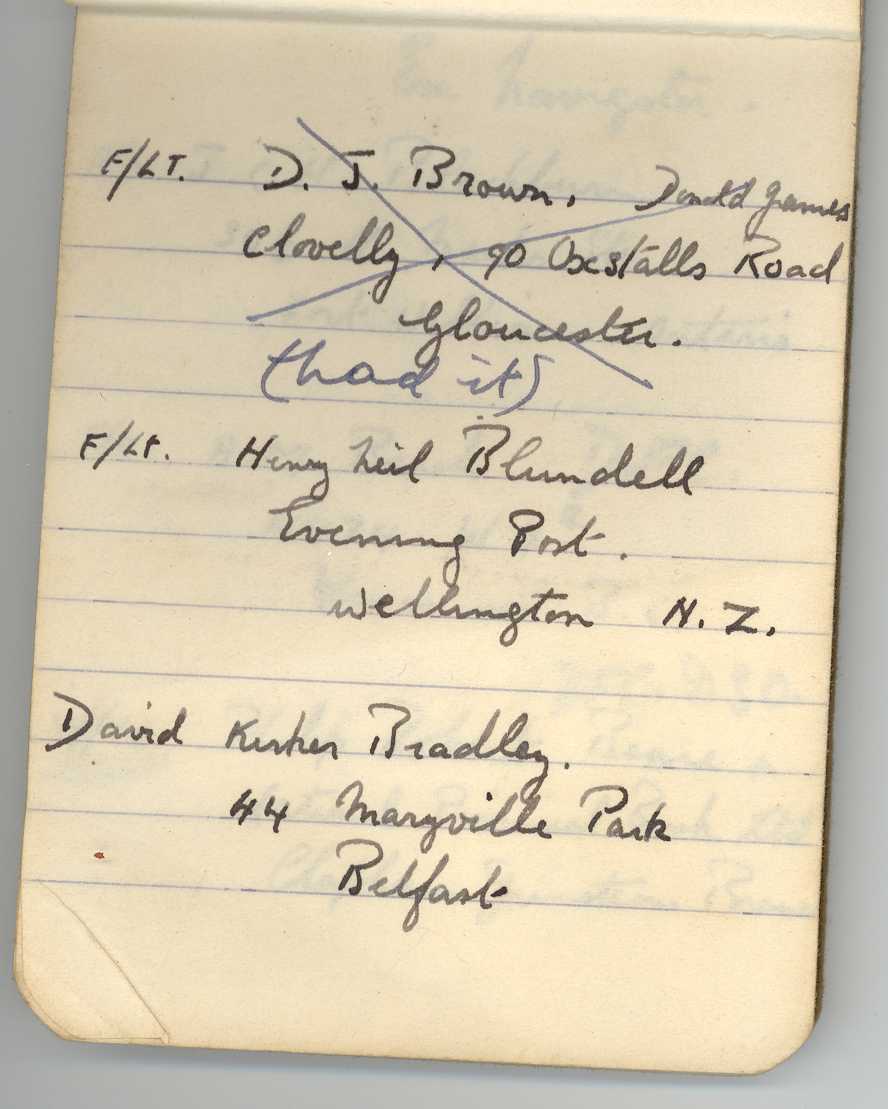 F/LT. D. J. Brown, Donald James
Clovelly, 90 Oxstalls Road
Gloucester.
(had it)
F/Lt. Henry Neil Blundell
Evening Post.
Wellington N.Z.
David Kirker Bradley.
44 Maryville Park
Belfast